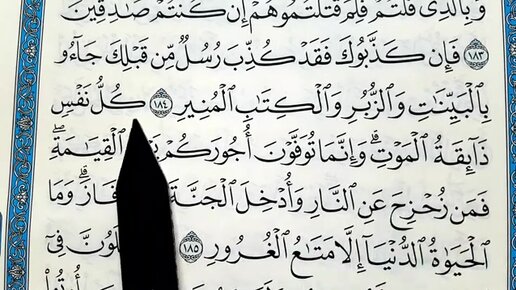 وَبِٱلَّذِى قُلْتُمْ فَلِمَ قَتَلْتُمُوهُمْ إِن كُنتُمْ صَٰدِقِينَ
١٨٣ فَإِن كَذَّبُوكَ فَقَدْ كُذِّبَ رُسُلٌ مِّن قَبْلِكَ جَآءُو
بِٱلْبَيِّنَٰتِ وَٱلزُّبُرِ وَٱلْكِتَٰبِ ٱلْمُنِيرِ ١٨٤ كُلُّ نَفْسٍ
ذَآئِقَةُ ٱلْمَوْتِ ۗ وَإِنَّمَا تُوَفَّوْنَ أُجُورَكُمْ ٱلْقِيَٰمَةِ ۖ
فَمَن زُحْزِحَ عَنِ ٱلنَّارِ وَأُدْخِلَ ٱلْجَنَّةَ فَازَ ۗ وَمَا
ٱلْحَيَوٰةُ ٱلدُّنْيَآ إِلَّا مَتَٰعُ ٱلْغُرُورِ ١٨٥ فِىٓ